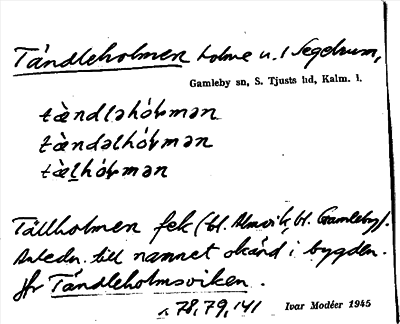 Tåndleholmen holme u. l Segelrum,
Gamleby sn, S. Tjusts hd, Kalm. l.
tǽndləhóɫmən
tǽndəlhóɫmən
tǽlhóɫmən
Tällholmen fek (bl. Almvik, bl. Gamleby).
Anledn. till namnet okänd i bygden.
Jfr Tåndleholmsviken.
s. 78, 79, 141
Ivar Modéer 1945